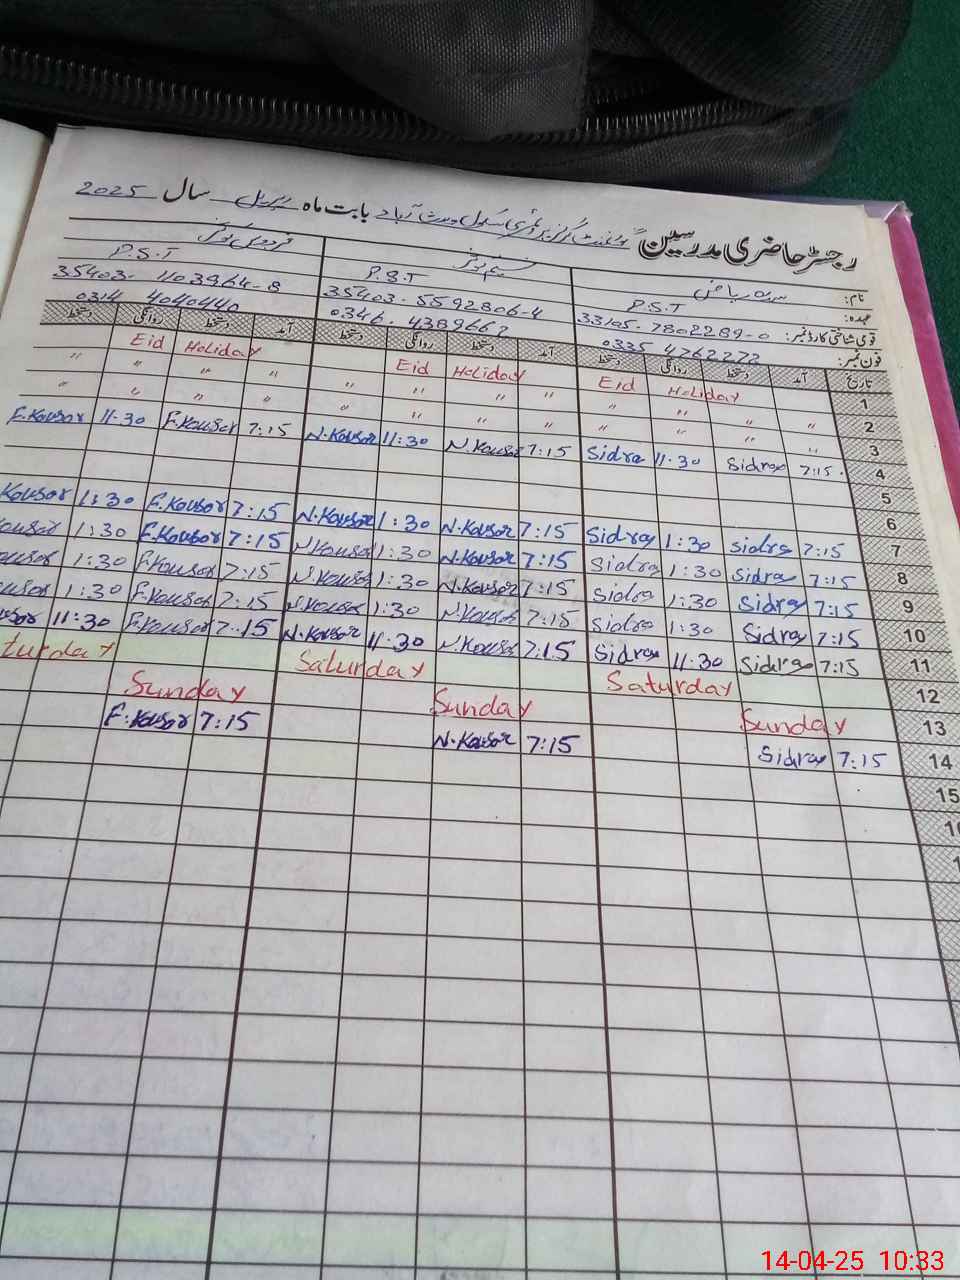 رجسٹر حاضری مدرسین گورنمنٹ گرلز پرائمری سکول آباد بابت ماہ اپریل سال 2025
نام: سدرہ ریاض نسیم کوثر فردوس کوثر
عہدہ: P.S.T P.S.T P.S.T
قومی شناختی کارڈ نمبر: 33105-7802289-0 35403-5592806-4 35403-1103964-8
فون نمبر: 0335 4762272 0346-4389662 0314 4040440
تاریخ آمد دستخط روانگی دستخط آمد دستخط روانگی دستخط آمد دستخط روانگی دستخط
1 Eid Holiday Eid Holiday Eid Holiday
2 " " " " " " " " " " "
3 " " " " " " " " " " "
4 7:15 Sidra 11:30 Sidra 7:15 N.Kousar 11:30 N.Kousar 7:15 F.Kousar 11:30 F.Kousar
5
6
7 7:15 Sidra 1:30 Sidra 7:15 N.Kousar 1:30 N.Kousar 7:15 F.Kousar 1:30 Kousar
8 7:15 Sidra 1:30 Sidra 7:15 N.Kousar 1:30 N.Kousar 7:15 F.Kousar 1:30 Kousar
9 7:15 Sidra 1:30 Sidra 7:15 N.Kousar 1:30 N.Kousar 7:15 F.Kousar 1:30 ousar
10 7:15 Sidra 1:30 Sidra 7:15 N.Kousar 1:30 N.Kousar 7:15 F.Kousar 1:30 ousar
11 7:15 Sidra 11:30 Sidra 7:15 N.Kousar 11:30 N.Kousar 7:15 F.Kousar 11:30 usar
12 Saturday Saturday turday
13 Sunday Sunday Sunday
14 7:15 Sidra 7:15 N.Kousar 7:15 F.Kousar
15
14-04-25 10:33